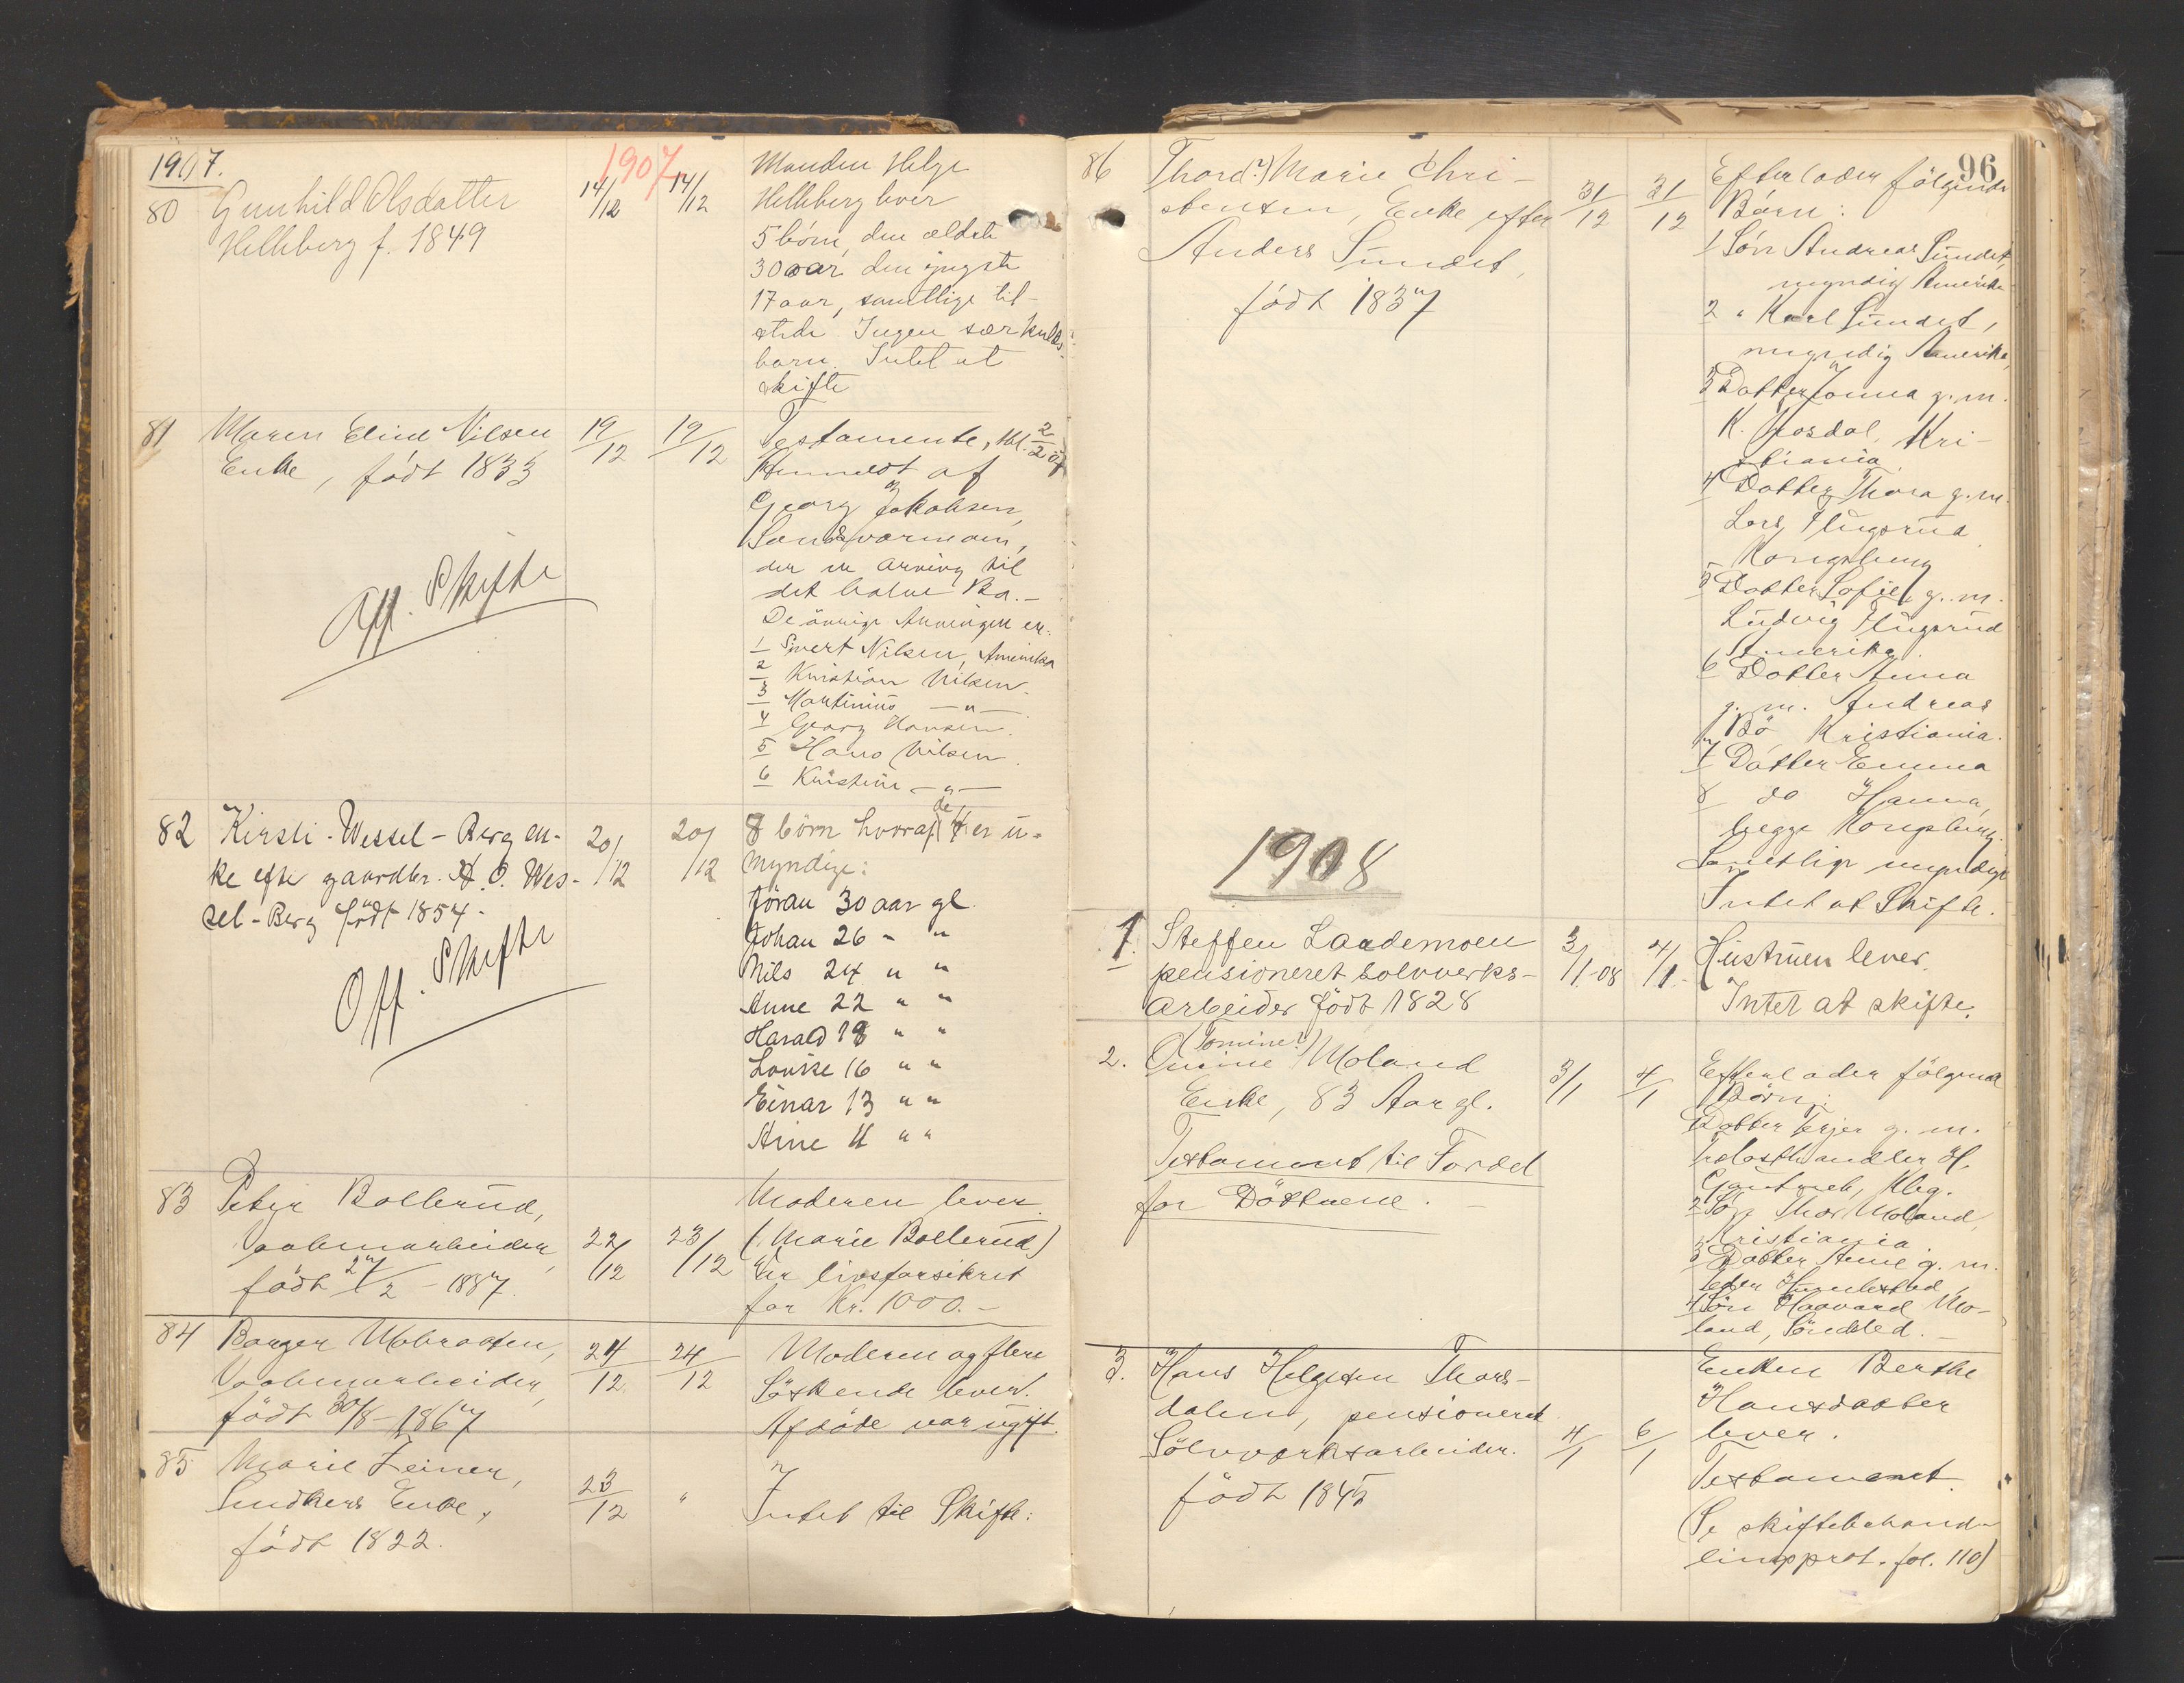 1907.
1907
80 Gunhild Olsdatter
Helleberg f. 1849
14/12 14/12
Manden Helge
Helleberg lever
5 börn, den ældste
30 aar den yngste
17 aar, samtlige til-
stede Ingen særkulds-
barn. Intet at
skifte
81 Maren Eline Nilsen
Enke, född 1833
19/12 19/12
Off. Skifte
Testamente,
af
Georg Jakobsen,
Sandsværmoen,
der er arving til
det halve Bo.-
De övrige Arvinger er:
1 Sivert Nilsen, Amerika
2 Kristian Nilsen
3 Martinius -"-
4 Georg Hansen.
5 Hans Nilsen.
6 Kristine -"-
82 Kirsti-Wessel-Berg en-
ke efter gaardbr. A. O. Wes-
sel-Berg född 1854-
20/12 20/12
Off. Skifte
8 börn hvoraf de 4 er u-
myndige:
Jöran 30 aar gl.
Johan 26 - "
Nils 24 " "
Anne 22 " "
Harald 18 " "
Louise 16 " "
Einar 13 " "
Aine 11 " "
83 Peter Bollerud,
Vaabenarbeider,
född 27/2 - 1887.
22/12 23/12
Moderen lever.
(Marie Bollerud)
Var livsforsikret
for Kr. 1000.-
84 Borger Mobraaten,
Vaabenarbeider,
född 30/8 - 1867
24/12 24/12
Moderen og flere
Söskende lever.
Afdöde var ugift.
85 Marie Zeiner,
Snedkers Enke,
född 1822.
23/12 "
Intet til Skifte.
96
86 Thord(?) Marie Chri-
stensen, Enke efter
Anders Sundet,
född 1837
31/12 31/12
Efterlader fölgende
Børn:
1 Sön Andreas Sundet,
myndig Amerika
2 " Karl Sundet,
myndig Amerika,
3 Datter Jonna g. m.
K. Mosdal, Kri-
stiania
4 Datter Thora g. m.
Lars Flugsrud
Kongsberg
5 Datter Sofie g. m.
Ludvig Flugsrud
Amerika.
6 Datter Anna
g. m. Andreas
Bö Kristiania.
7 Datter Emma
8 do Hanna,
begge Kongsberg.
Samtlige myndige
Intet at Skifte.
1908
1. Steffen Laademoen
pensioneret sølvverks-
arbeider född 1828
3/1-08 4/1-
Hustruen lever,
Intet at skifte.
2. (Tomine?)
Omine Moland
Enke, 83 Aar gl.
Testament til Fordel
for Döttrene.
3/1 4/1
Efterlader fölgende
Børn:
Datter Terjer g. m.
Trelasthandler H.
Kbg.
2 Sön Thor Moland,
Kristiania
3 Datter Anne g. m.
Peder
4 Sön Haavard Mo-
land, Söndeled.-
3. Hans Helgesen Thors-
dalen, pensioneret
Sölvværksarbeider.
född 1845
4/1 6/1
Enken Berthe
Hansdatter
lever.
Testament.
(Se skiftebehand-
lingsprot. fol. 110)